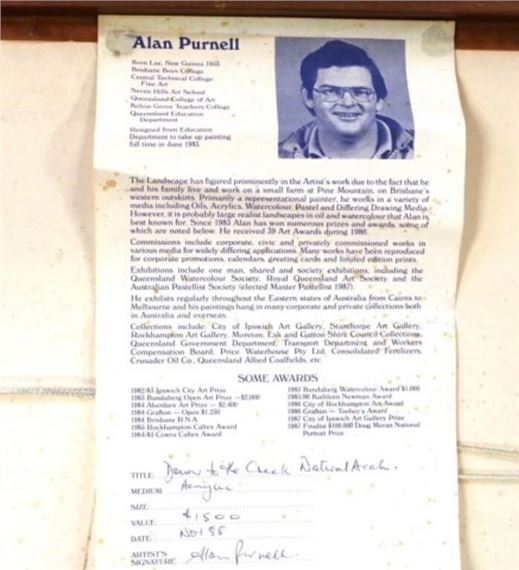 Alan Purnell
Born Lae, New Guinea 1953
Brisbane Boys College
Central Technical College
Fine Art
Seven Hills Art School
Queensland College of Art
Kelvin Grove Teachers College
Queensland Education
Department
Resigned from Education
Department to take up painting
full time in June 1983.
The Landscape has figured prominently in the Artist's work due to the fact that he
and his family live and work on a small farm at Pine Mountain, on Brisbane's
western outskirts. Primarily a representational painter, he works in a variety of
media including Oils, Acrylics, Watercolour, Pastel and Differing Drawing Media.
However, it is probably large realist landscapes in oil and watercolour that Alan is
best known for. Since 1983 Alan has won numerous prizes and awards, some of
which are noted below. He received 39 Art Awards during 1986.
Commissions include corporate, civic and privately commissioned works in
various media for widely differing applications. Many works have been reproduced
for corporate promotions, calendars, greeting cards and limited edition prints.
Exhibitions include one man, shared and society exhibitions, including the
Queensland Watercolour Society, Royal Queensland Art Society and the
Australian Pastellist Society (elected Master Pastellist 1987).
He exhibits regularly throughout the Eastern states of Australia from Cairns to
Melbourne and his paintings hang in many corporate and private collections both
in Australia and overseas.
Collections include: City of Ipswich Art Gallery, Stanthorpe Art Gallery,
Rockhampton Art Gallery, Moreton, Esk and Gatton Shire Council Collections,
Queensland Government Department, Transport Department and Workers
Compensation Board, Price Waterhouse Pty Ltd, Consolidated Fertilizers,
Crusader Oil Co., Queensland Allied Coalfields, etc.
SOME AWARDS
1982/83 Ipswich City Art Prize
1983 Bundaberg Open Art Prize — $2,000
1984 Aberdare Art Prize — $2,400
1984 Grafton — Open $1,250
1984 Brisbane R.N.A.
1985 Rockhampton Caltex Award
1984/85 Cowra Caltex Award
1985 Bundaberg Watercolour Award $1,000
1985/86 Kathleen Newman Award
1986 City of Rockhampton Art Award
1986 Grafton — Toohey's Award
1987 City of Ipswich Art Gallery Prize
1987 Finalist $100,000 Doug Moran National
Portrait Prize
TITLE Down to the Creek Natural Arch.
MEDIUM
SIZE
VALUE $1500
DATE Nov 88
ARTIST'S
SIGNATURE Alan Purnell.